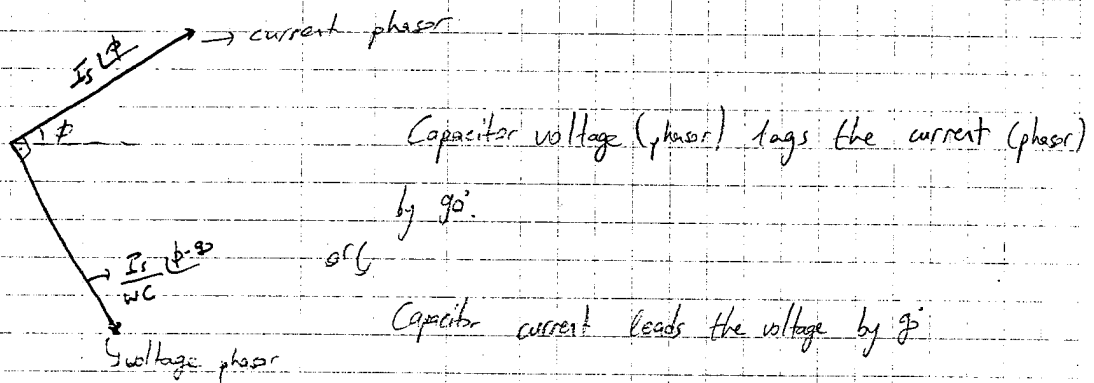 Is∠ϕ → current phasor
ϕ
Capacitor voltage (phasor) lags the current (phasor)
by 90°.
→ Is/wC ∠ϕ-90
or,
Capacitor current leads the voltage by 90°
↳ voltage phasor